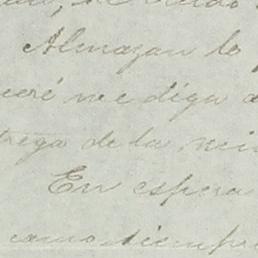 Almazan lo
me diga
trega de la
En espera
como siempre